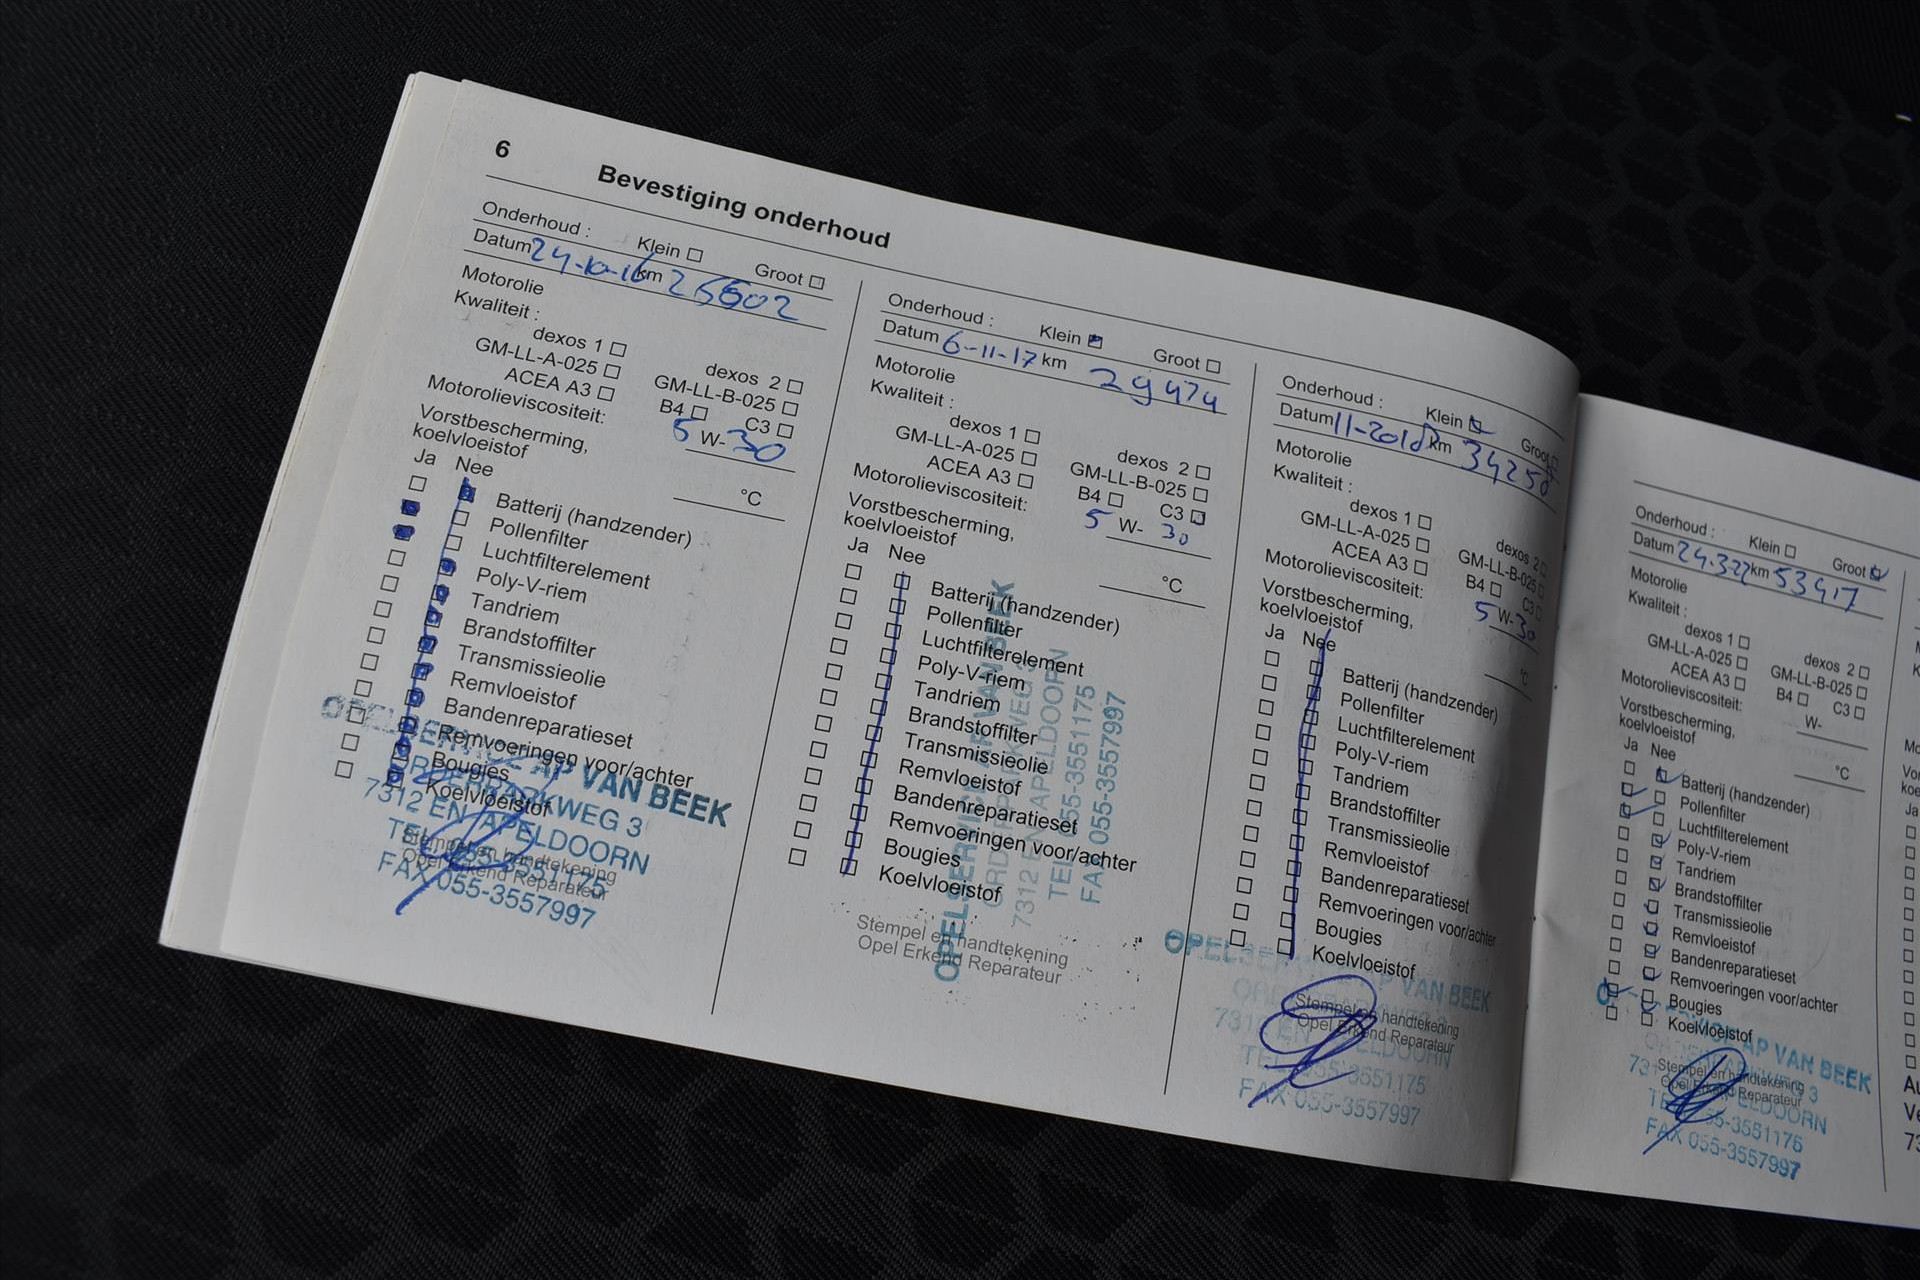 6
Bevestiging onderhoud
Onderhoud : Klein Groot
Datum 24-10-16 km 25602
Motorolie
Kwaliteit :
dexos 1 dexos 2
GM-LL-A-025 GM-LL-B-025
ACEA A3 B4 C3
Motorolieviscositeit: 5 W- 30
Vorstbescherming,
koelvloeistof °C
Ja Nee
Batterij (handzender)
Pollenfilter
Luchtfilterelement
Poly-V-riem
Tandriem
Brandstoffilter
Transmissieolie
Remvloeistof
Bandenreparatieset
Remvoeringen voor/achter
Bougies
Koelvloeistof
AP VAN BEEK
7312 EN APELDOORN
TEL 055-3551175
FAX 055-3557997
Stempel en handtekening
Opel Erkend Reparateur
Onderhoud : Klein Groot
Datum 6-11-17 km 29474
Motorolie
Kwaliteit :
dexos 1 dexos 2
GM-LL-A-025 GM-LL-B-025
ACEA A3 B4 C3
Motorolieviscositeit: 5 W- 30
Vorstbescherming,
koelvloeistof °C
Ja Nee
Batterij (handzender)
Pollenfilter
Luchtfilterelement
Poly-V-riem
Tandriem
Brandstoffilter
Transmissieolie
Remvloeistof
Bandenreparatieset
Remvoeringen voor/achter
Bougies
Koelvloeistof
VAN BEEK
7312 EN APELDOORN
TEL 055-3551175
FAX 055-3557997
Stempel en handtekening
Opel Erkend Reparateur
Onderhoud : Klein Groot
Datum 11-2018 km 34250
Motorolie
Kwaliteit :
dexos 1 dexos 2
GM-LL-A-025 GM-LL-B-025
ACEA A3 B4 C3
Motorolieviscositeit: 5 W-30
Vorstbescherming,
koelvloeistof °C
Ja Nee
Batterij (handzender)
Pollenfilter
Luchtfilterelement
Poly-V-riem
Tandriem
Brandstoffilter
Transmissieolie
Remvloeistof
Bandenreparatieset
Remvoeringen voor/achter
Bougies
Koelvloeistof
AP VAN BEEK
APELDOORN
TEL 055-3551175
FAX 055-3557997
Stempel en handtekening
Opel Erkend Reparateur
Onderhoud : Klein Groot
Datum 24.3.22 km 53417
Motorolie
Kwaliteit :
dexos 1 dexos 2
GM-LL-A-025 GM-LL-B-025
ACEA A3 B4 C3
Motorolieviscositeit: W-
Vorstbescherming,
koelvloeistof °C
Ja Nee
Batterij (handzender)
Pollenfilter
Luchtfilterelement
Poly-V-riem
Tandriem
Brandstoffilter
Transmissieolie
Remvloeistof
Bandenreparatieset
Remvoeringen voor/achter
Bougies
Koelvloeistof
AP VAN BEEK
APELDOORN
055-3551175
FAX 055-3557997
Stempel en handtekening
Opel Erkend Reparateur